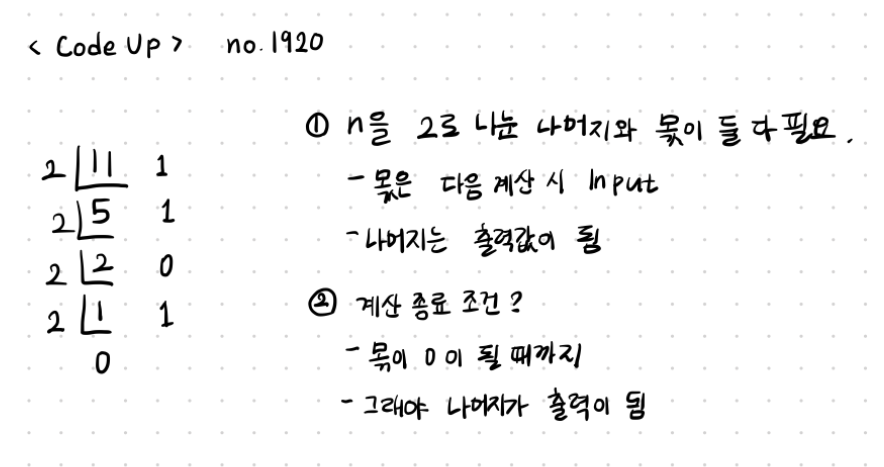 < Code Up > no. 1920
2 11 1
2 5 1
2 2 0
2 1 1
0
① n을 2로 나눈 나머지와 몫이 둘 다 필요.
- 몫은 다음 계산 시 Input
- 나머지는 출력값이 됨
② 계산 종료 조건?
- 몫이 0이 될 때까지
- 그래야 나머지가 출력이 됨